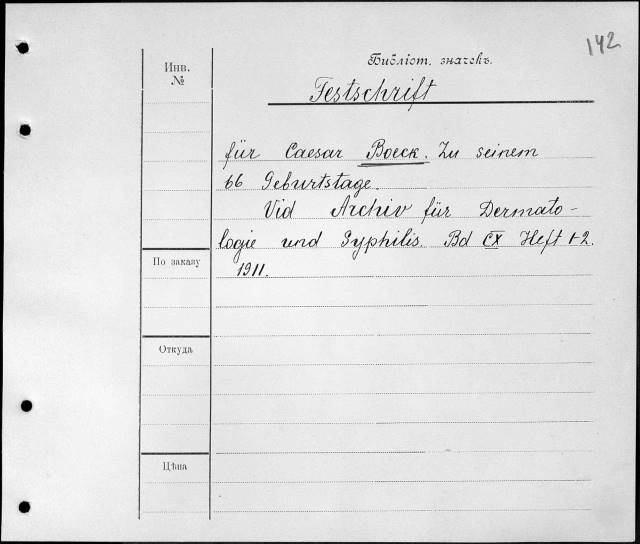 142
Инв.
№
Библіот. значекъ.
Festschrift
für Caesar Boeck. Zu seinem
66 Geburtstage.
Vid Archiv für Dermato-
logie und Syphilis. Bd CX Heft 1-2.
1911.
По заказу
Откуда
Цѣна